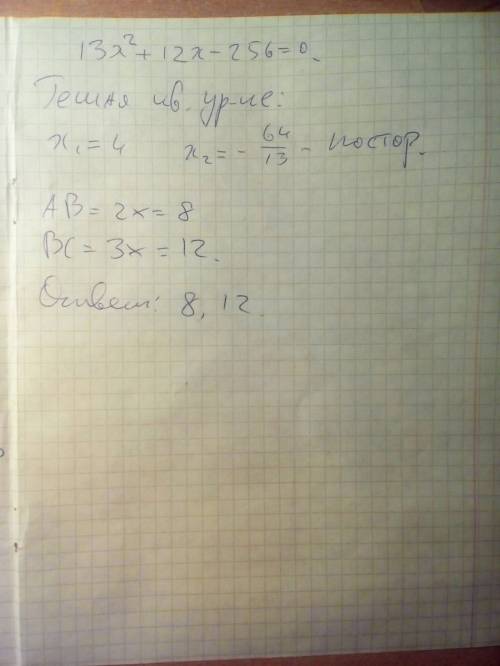 13x² + 12x - 256 = 0.
Решая кв. ур-ие:
x₁ = 4 x₂ = - 64/13 - постор.
AB = 2x = 8
BC = 3x = 12.
Ответ: 8, 12.